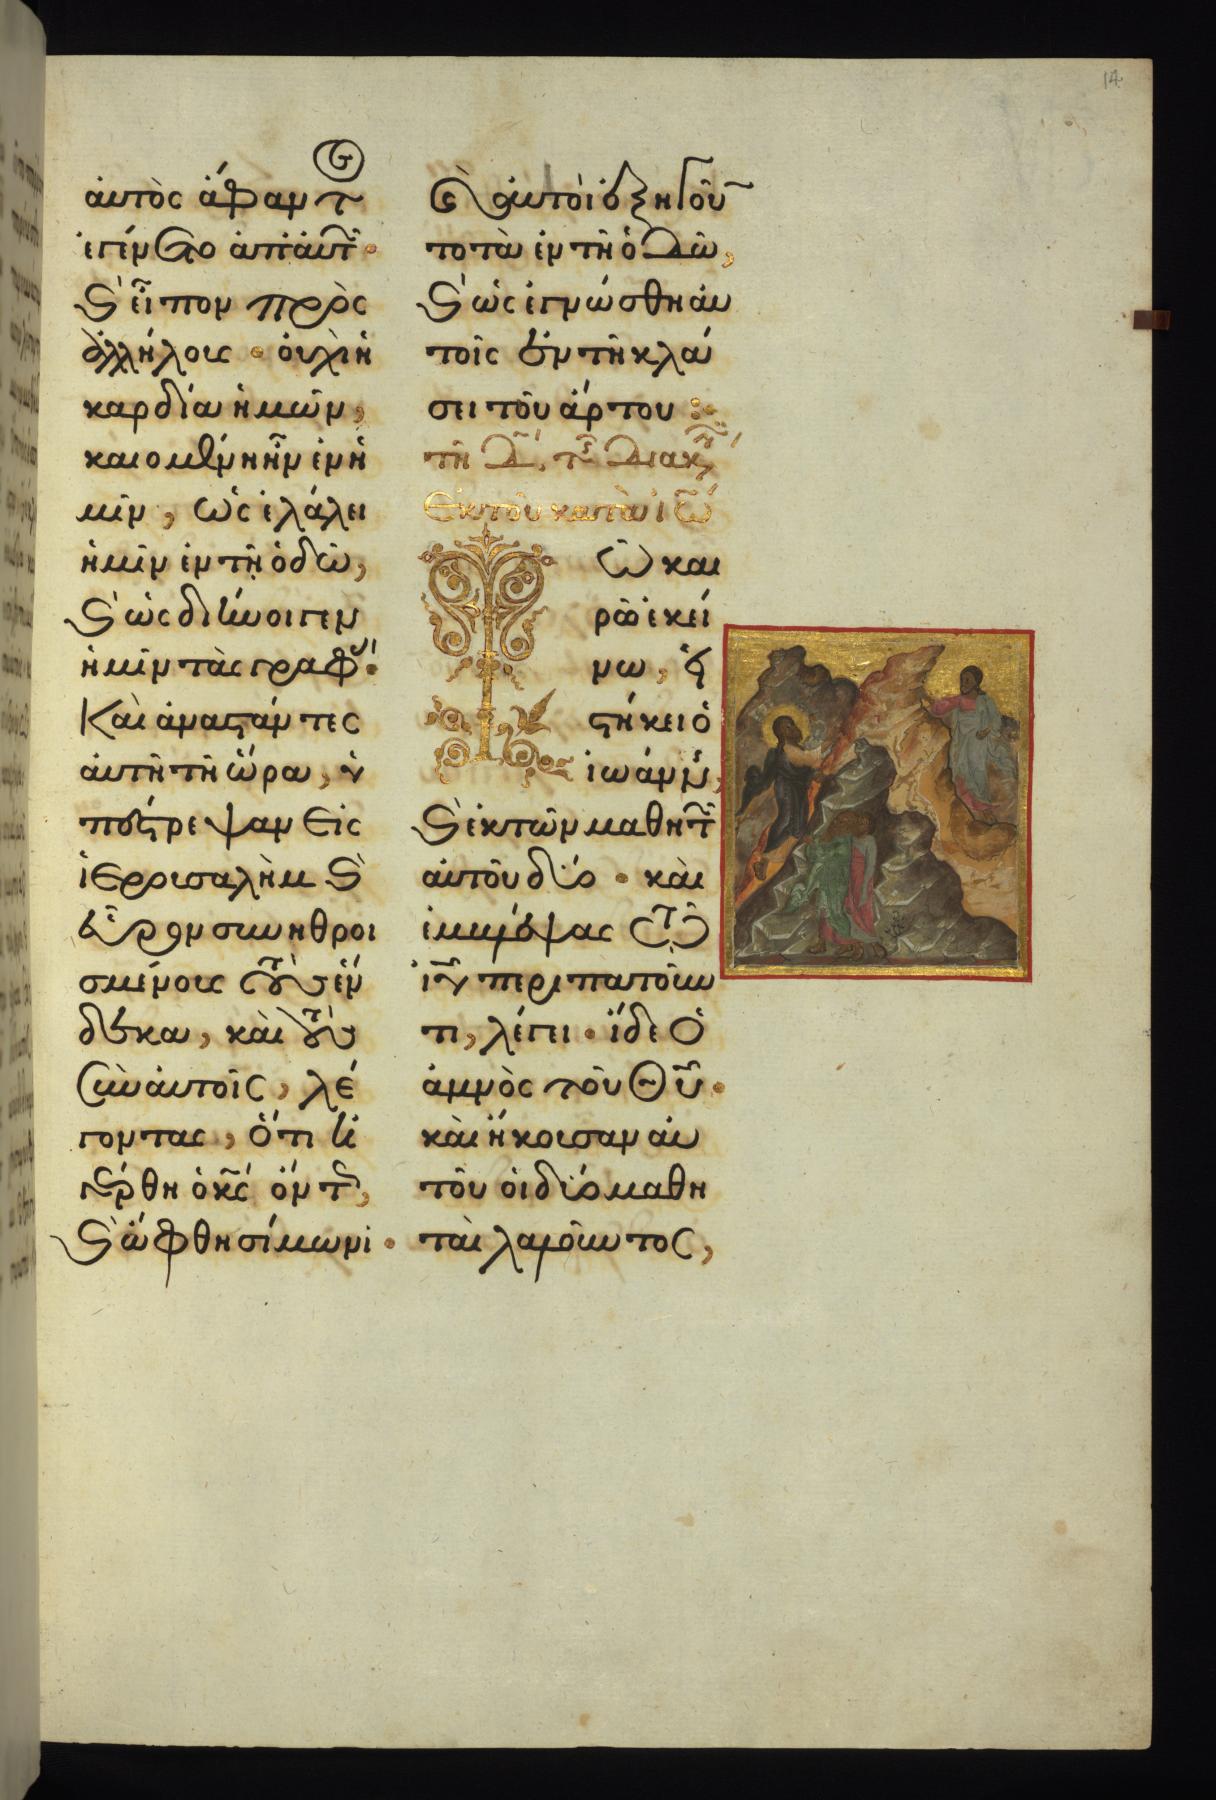 14
αὐτὸς ἄφαντ
ἐγένετο ἀπ' αὐτ
Ϛ εἶπον πρὸς
ἀλλήλους · οὐχὶ ἡ
καρδία ἡμῶν,
καιομένη ἦν ἐν ἡ
μῖν, ὡς ἐλάλει
ἡμῖν ἐν τῇ ὁδῶ,
Ϛ ὡς διήνοιγεν
ἡμῖν τὰς γραφ ·
Καὶ ἀναστάντες
αὐτῆ τῆ ὥρα, ὑ
πέστρεψαν εἰς
ἱερουσαλὴμ Ϛ
εὗρον συνηθροι
σμένους τοὺς ἕν
δεκα, καὶ τοὺς
σὺν αὐτοῖς, λέ
γοντας, ὅτι ἠ
γέρθη ὁ κς ὄντ,
Ϛ ὤφθη σίμωνι ·
Ϛ αὐτοὶ ἐξηγοῦν
το τὰ ἐν τῇ ὁδῶ,
Ϛ ὡς ἐγνώσθη αὐ
τοῖς ἐν τῆ κλά
σει τοῦ ἄρτου
τῆ Δ, τ διακ
Ἐκ τοῦ κατὰ ἰω
Τῶ και
ρῶ ἐκεί
νω, εἱ
στήκει ὁ
ἰωάνν,
Ϛ ἐκ τῶν μαθητ
αὐτοῦ δύο · καὶ
ἐμβλέψας τῶ
ἰῦ περιπατοῦν
τι, λέγει · ἴδε ὁ
ἀμνὸς τοῦ Θῦ ·
καὶ ἤκουσαν αὐ
τοῦ οἱ δύο μαθη
ταὶ λαλοῦντος,